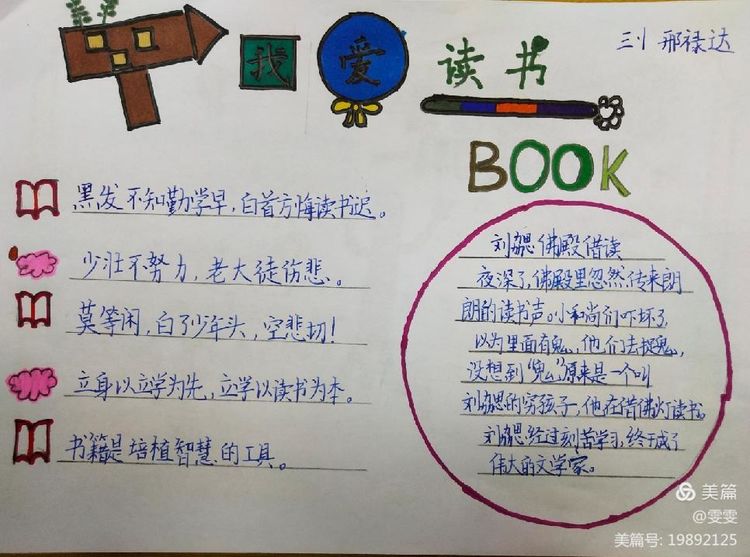 我爱读书
三1 邢禄达
BOOK
黑发不知勤学早,白首方悔读书迟。
少壮不努力,老大徒伤悲。
莫等闲,白了少年头,空悲切!
立身以立学为先,立学以读书为本。
书籍是培植智慧的工具。
刘勰佛殿借读
夜深了,佛殿里忽然传来朗
朗的读书声。小和尚们吓坏了,
以为里面有鬼,他们去捉鬼,
没想到“鬼”原来是一个叫
刘勰的穷孩子,他在借佛灯读书。
刘勰经过刻苦学习,终于成了
伟大的文学家。
美篇
@雯雯
美篇号: 19892125